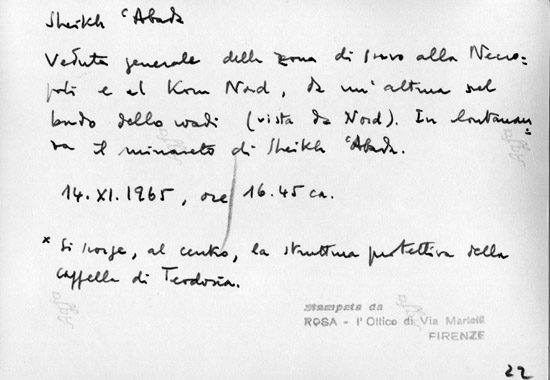 Sheikh ʿAbada
Veduta generale della zona di scavo alla Necro=
poli e al Kom Nord, da un'altura sul
bordo dello wadi (vista da Nord). In lontanan=
za il minareto di Sheikh ʿAbada.
14.XI.1965, ore 16.45 ca.
* Si scorge, al centro, la struttura protettiva della
cappella di Teodosia.
Stampata da
ROSA - l'Ottico di Via Martelli
FIRENZE
22